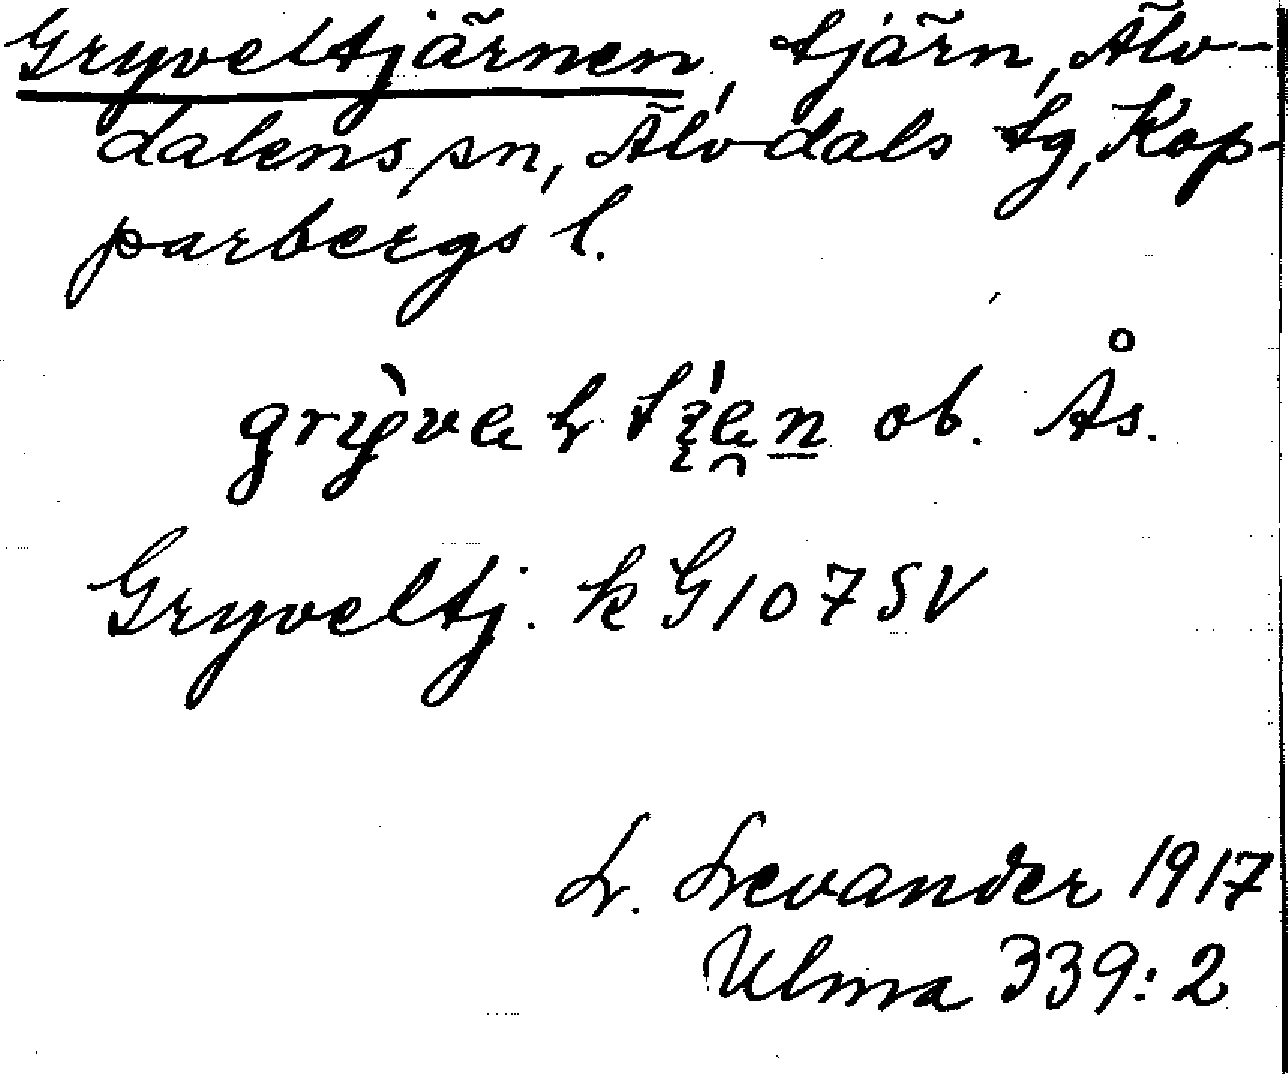 Gryveltjärnen, tjärn, Älv-
dalens sn, Älvdals tg, Kop-
parbergs l.
ob. Ås.
Gryveltj. k G 107 SV
L. Levander 1917
Ulma 339:2